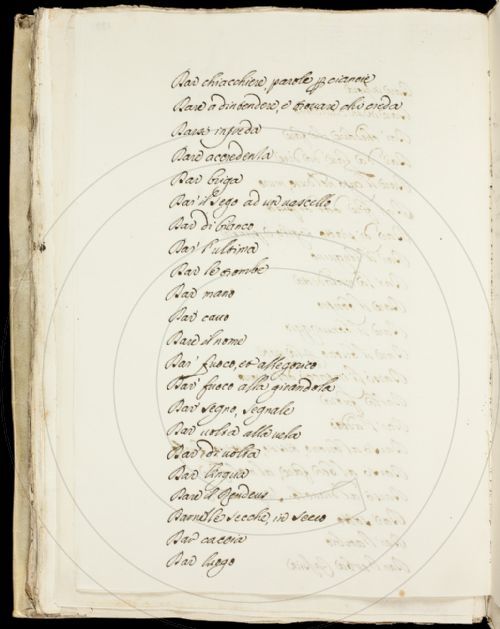 Dar chiacchiere, parole per
Dare ad intendere, e trovare chi creda
Darsi in preda
Dare accredenta
Dar briga
Dar il sego ad un vascello
Dar di bianco
Dar l'ultima
Dar le trombe
Dar mano
Dar cavo
Dare il nome
Dar fuoco, et allegorico
Dar fuoco alla girandola
Dar segno, segnale
Dar volta alla vela
Dar di volta
Dar lingua
Dare il Rendeus
Dar nelle secche, in secco
Dar caccia
Dar luogo